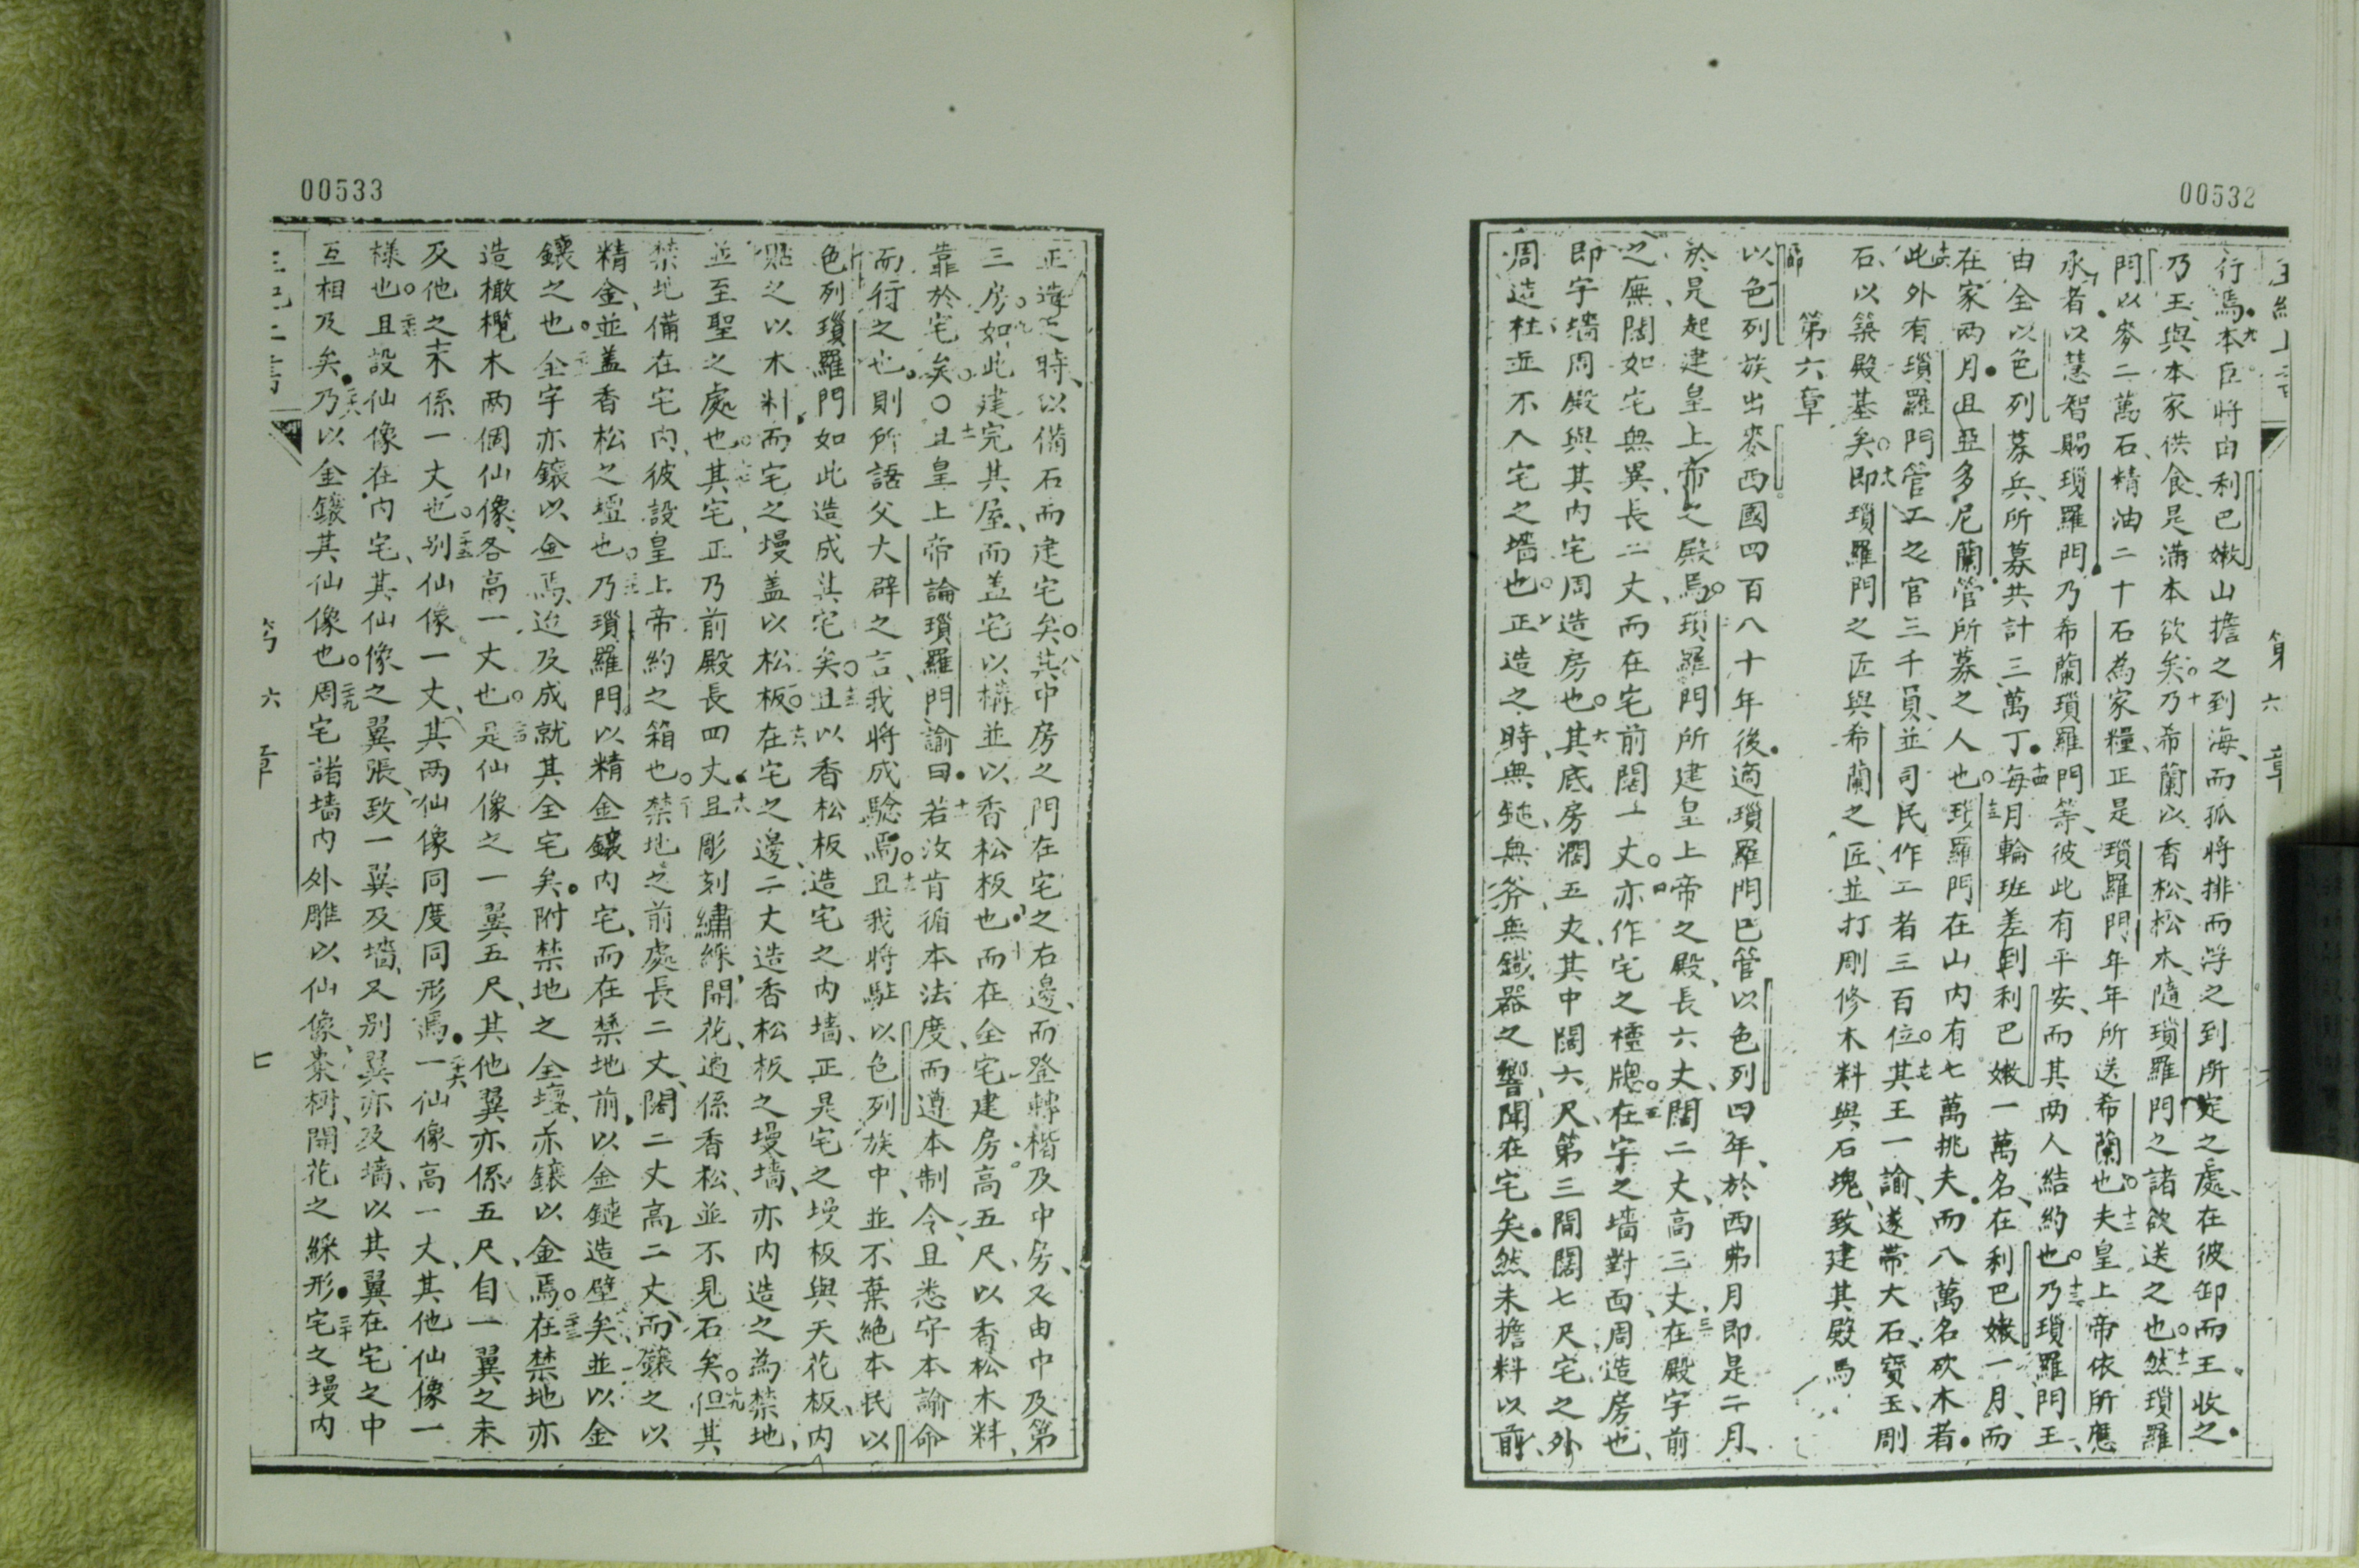 00532
行焉九本臣將由利巴嫩山擔之到海而孤將排而浮之到所定之處在彼卸而王收之
乃王與本家供食是滿本欲矣十乃希蘭以香松松木隨瑣羅門之諸欲送之也十一然瑣羅
門以麥二萬石精油二十石為家糧正是瑣羅門年年所送希蘭也十二夫皇上帝依所應
承者以慧智賜瑣羅門乃希蘭瑣羅門等彼此有平安而其两人結約也十三乃瑣羅門王
由全以色列募兵所募共計三萬丁十四每月輪班差到利巴嫩一萬名在利巴嫩一月而
在家两月且亞多尼蘭管所募之人也十五瑣羅門在山内有七萬挑夫而八萬名砍木者
十六此外有瑣羅門管工之官三千員並司民作工者三百位十七其王一諭遂帶大石寶玉剛
石以築殿基矣十八即瑣羅門之匠與希蘭之匠並打剛修木料與石塊致建其殿焉
第六章
以色列族出麥西國四百八十年後適瑣羅門巳管以色列四年於西弗月即是二月
於是起建皇上帝之殿焉二瑣羅門所建皇上帝之殿長六丈闊二丈高三丈三在殿宇前
之廡闊如宅無異長二丈而在宅前闊一丈四亦作宅之櫺牕五在宇之墻對面周造房也
即宇墻周殿與其内宅周造房也六其底房濶五尺其中闊六尺第三間闊七尺宅之外
周造杜並不入宅之墻也七正造之時無鎚無斧無鐵器之響聞在宅矣然未擔料以前
第六章
00533
正造之時以備石而建宅矣八其中房之門在宅之右邊而登轉楷及中房又由中及第
三房九如此建完其屋而盖宅以構並以香松板也十而在全宅建房高五尺以香松木料
靠於宅矣十一且皇上帝論瑣羅門諭曰十二若汝肯循本法度而遵本制令且悉守本諭命
而行之也則所語父大辟之言我將成騐焉十三且我將駐以色列族中並不棄絶本民以
色列瑣羅門如此造成其宅矣十五且以香松板造宅之内墙正是宅之墁板與天花板内
貼之以木料而宅之墁盖以松板十六在宅之邊二丈造香松板之墁墙亦内造之為禁地
並至聖之處也十七其宅正乃前殿長四丈十八且彫刻繡綵開花適係香松並不見石矣十九但其
禁地備在宅内彼設皇上帝約之箱也二十禁地之前處長二丈闊二丈高二丈而鑲之以
精金並盖香松之壇也乃瑣羅門以精金鑲内宅而在禁地前以金鏈造壁矣並以金
鑲之也全宇亦鑲以金焉迨及成就其全宅矣附禁地之全壇亦鑲以金焉二十三在禁地亦
造橄欖木两個仙像各高一丈也是仙像之一翼五尺其他翼亦係五尺自一翼之末
及他之末係一丈也二十五别仙像一丈其两仙像同度同形焉二十六一仙像高一丈其他仙像一
樣也且設仙像在内宅其仙像之翼張致一翼及墻又别翼亦及墻以其翼在宅之中
互相及矣二十八乃以金鑲其仙像也二十九周宅諸墙内外雕以仙像棗樹開花之綵形三十宅之墁内
第六章
七